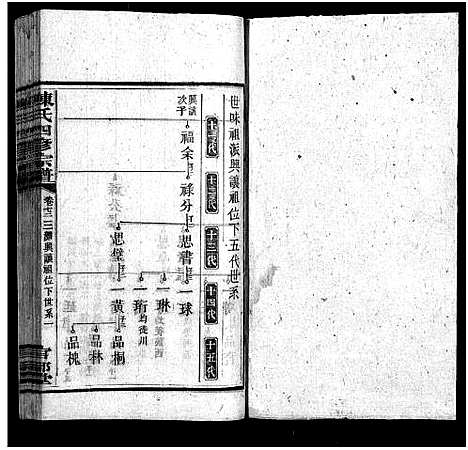 世味祖派興讓祖位下五代世系
十一代
十二代
十三代
十四代
十五代
興讓
次子
福余
祿分
思稽
一球
一琳
一珩
均徙川
思璧
一黃
品桐
品林
品槐
陳氏四修宗譜
卷十三
興讓祖位下世系
一